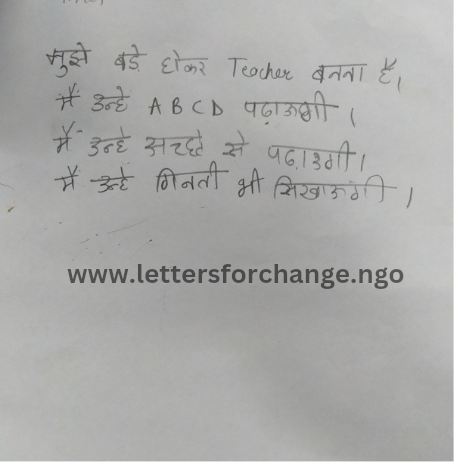 मुझे बड़े होकर Teacher बनना है।
मैं उन्हे A B C D पढ़ाऊगी ।
मैं उन्हे अच्छे से पढ़ाउगी।
मैं उन्हे गिनती भी सिखाऊगी ।
www.lettersforchange.ngo